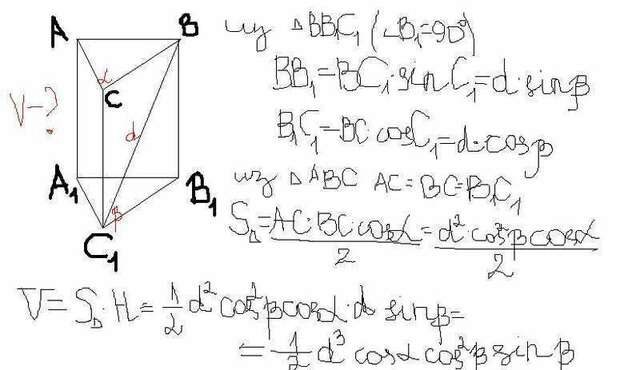 A B
из △BB₁C₁ (∠B₁=90°)
α
C
BB₁=BC₁·sinC₁=d·sinβ
V-?
d
B₁C₁=BC·cosC₁=d·cosβ
A₁ B₁
из △ABC AC=BC=B₁C₁
β
C₁
S△=AC·BC·cosα/2=d²cos²βcosα/2
V=S△·H=1/2 d²cos²βcosα·d sinβ=
=1/2 d³cosαcos²βsinβ